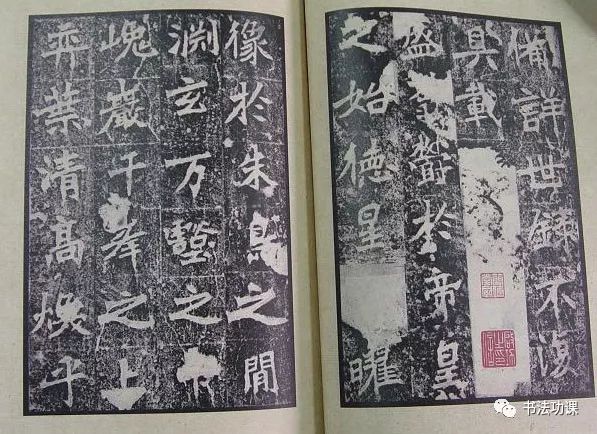 備詳世録不復
具載
盛蕤鬱於帝皇
之始徳星曜
像於朱鳥之閒
淵玄万壑之
嵬巖千峯之上
弈葉清高煥乎
书法功课